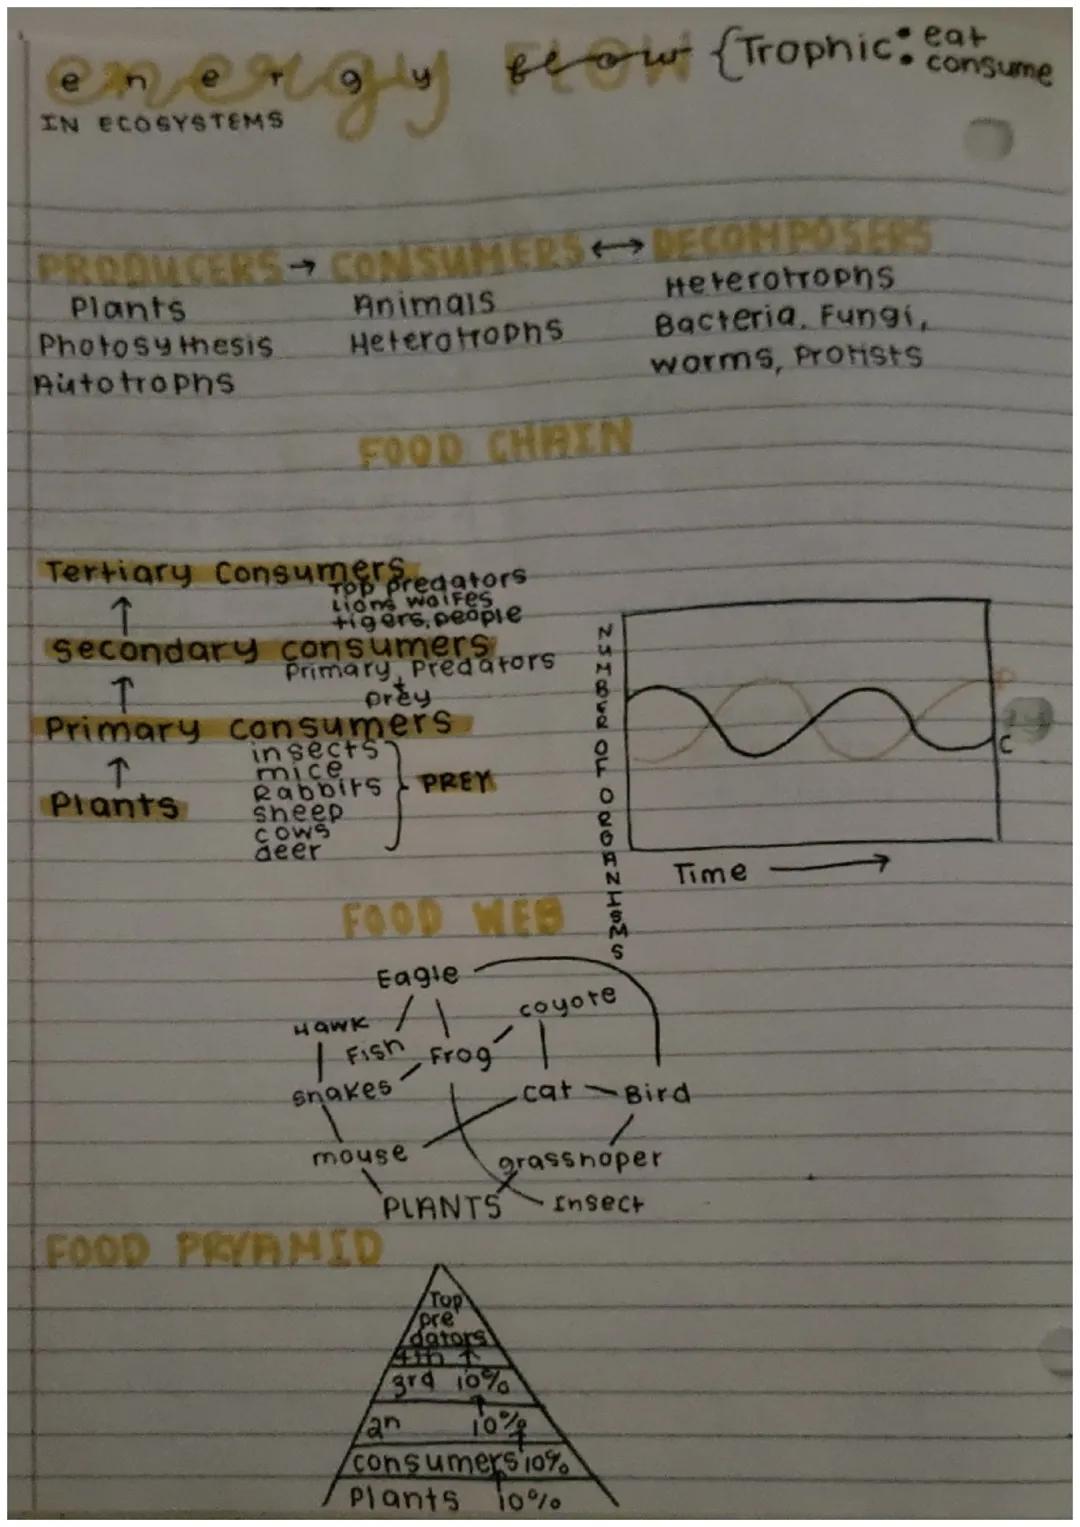 energy FLOW flow {Trophic: eat
: consume
IN ECOSYSTEMS
PRODUCERS → CONSUMERS ↔ DECOMPOSERS
Plants Animals Heterotrophs
Photosythesis Heterotrophs Bacteria, Fungi,
Autotrophs worms, Protists
FOOD CHAIN
Tertiary Consumers
Top predators
Lions wolfes
tigers, people
↑
Secondary consumers
Primary, Predators
prey
↑
Primary consumers
insects
mice
Rabbits
sheep
cows
deer
} PREY
↑
Plants
NUMBER OF ORGANISMS
P
C
Time →
FOOD WEB
Eagle
Hawk Fish Frog coyote
snakes cat Bird
mouse grasshoper
PLANTS Insect
FOOD PRYAMID
Top
pre
dators
4th ↑
3rd 10%
2n 10%
consumers 10%
Plants 10%